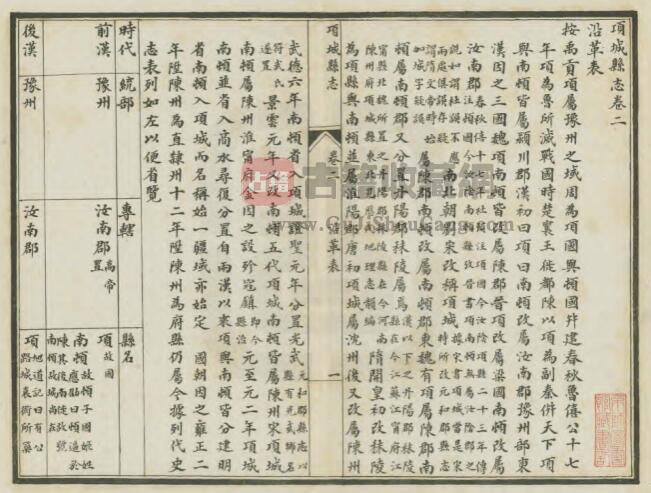 項城縣志卷二
沿革表
按禹貢項屬豫州之域周為項國與頓國幷建春秋魯僖公十七
年項為魯所滅戰國時楚襄王徙都陳以項為副秦併天下項
與南頓皆屬潁川郡漢初曰項曰南頓改屬汝南郡豫州部東
漢因之三國魏項南頓皆改屬陳郡晉項改屬梁國南頓改屬
汝南郡
南北朝劉宋改稱項城
屬陳郡南頓改屬南頓郡東魏有項屬陳郡南
頓屬南頓郡又分置丹陽郡秣陵屬焉
隋開皇初改秣陵
為項縣與南頓並屬淮陽郡唐初項城屬沈州後又改屬陳州
項城縣志
卷二
沿革表
一
武德六年南頓省入項城證聖元年分置光武
景雲元年又改南頓五代項城南頓皆屬陳州宋項城
南頓屬陳州淮寧府金因之設殄寇鎮
元至元二年項城
南頓並省入商水尋復分置自兩漢以來項與南頓皆分建明
省南頓入項城而名稱始一疆域亦始定 國朝因之雍正二
年陞陳州為直隸州十二年陞陳州為府縣仍屬今據列代史
志表列如左以便省覽
時代 統部 專轄 縣名
前漢 豫州 汝南郡 高帝置 項 故國
南頓 故頓子國姬姓
後漢 豫州 汝南郡 項 地道記曰有公路城袁術所築
古籍收藏网
www.GuJiShouCang.com